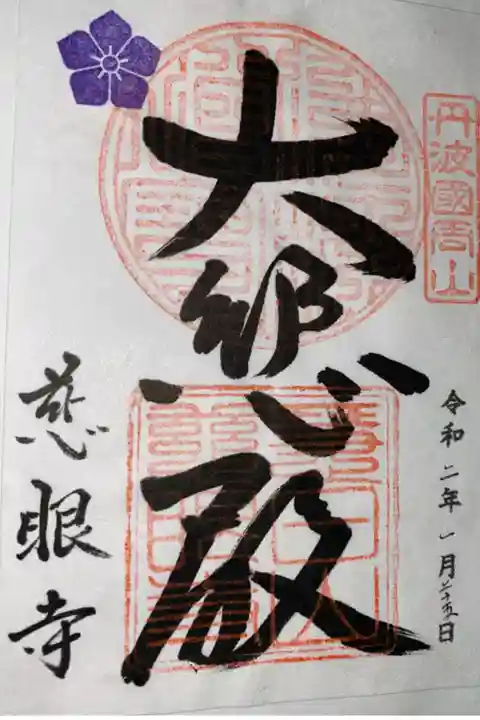 丹波國周山
令和二年一月二十五日
大悲殿
慈眼寺